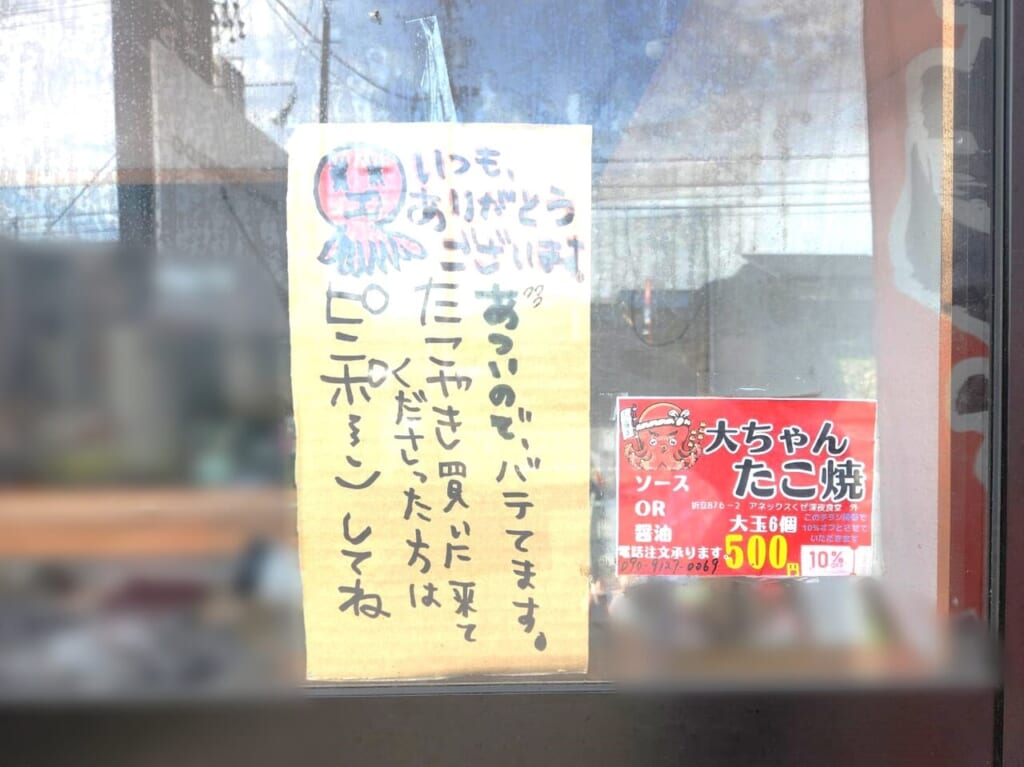 いつも、
ありがとう
ございます。
あついので、バテてます。
たこやき買いに来て
くださった方は
ピンポーンしてね
大ちゃん
たこ焼
ソース
OR
醤油
折立876-2 アネックスくぜ深夜食堂 外
大玉6個
500円
このチラシ持参で
10%オフとさせて
いただきます
10%
OFF
電話注文承ります。
090-9127-0069